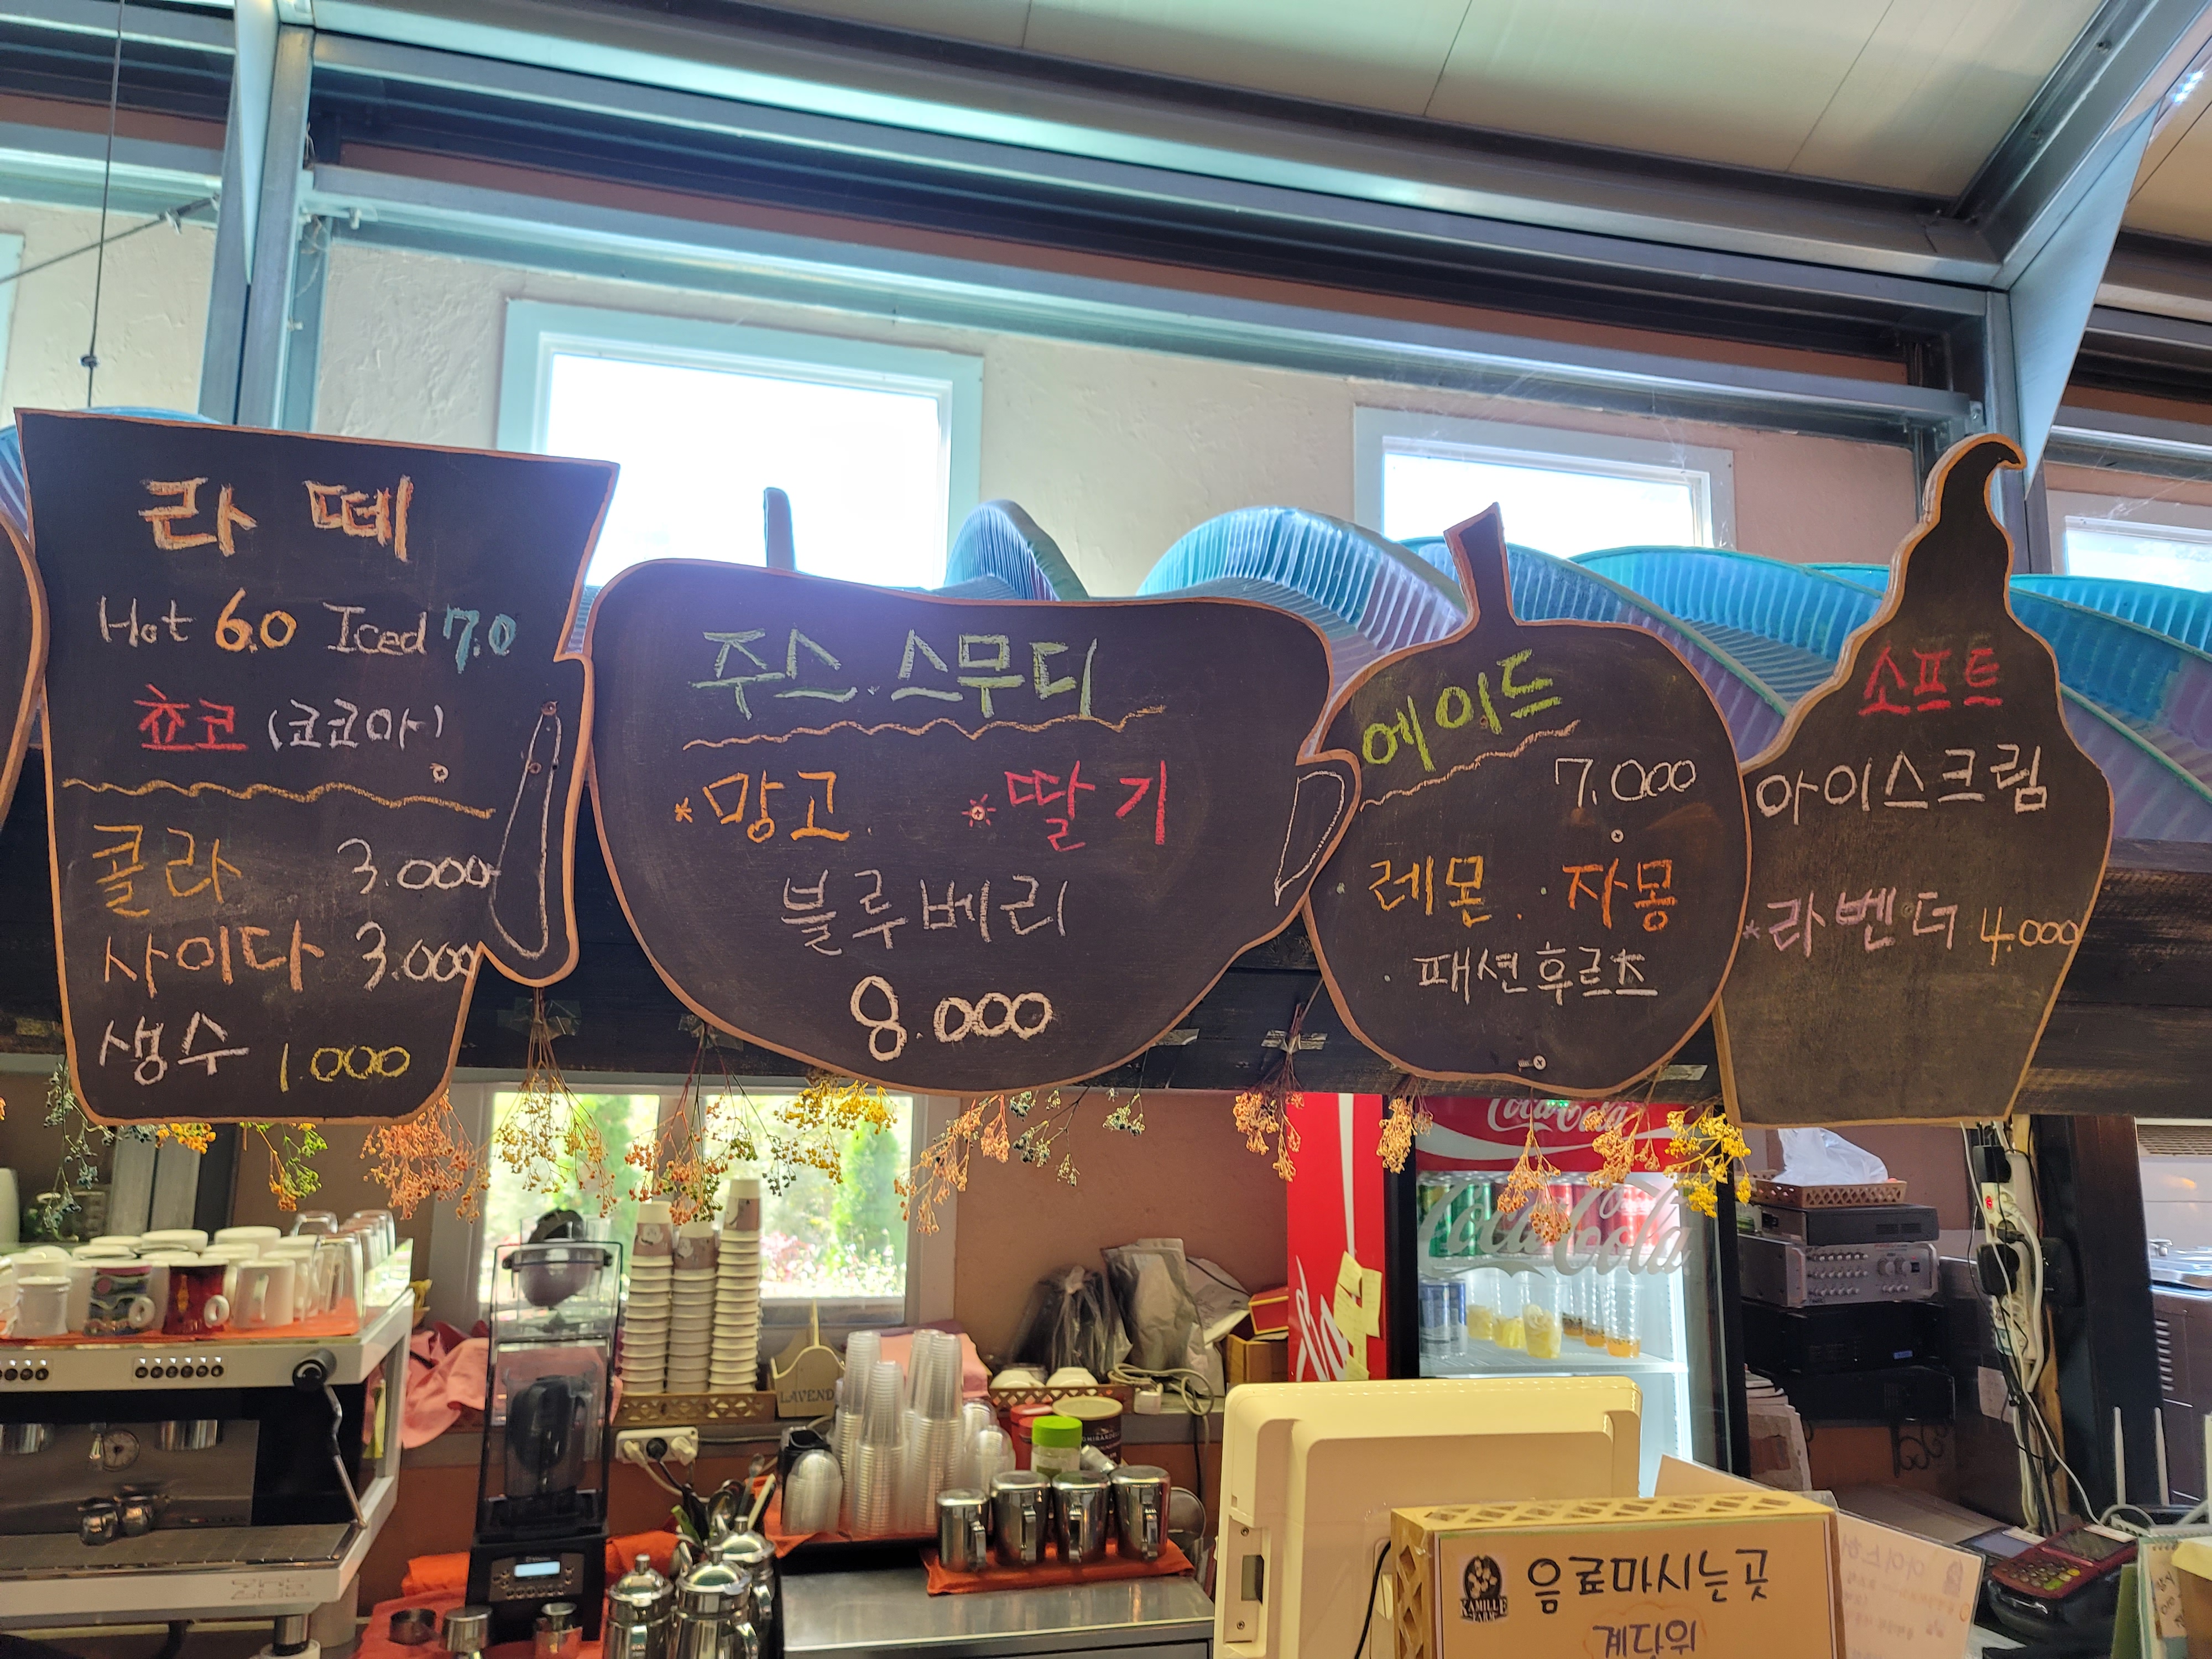 라떼
Hot 6.0 Iced 7.0
쵸코 (코코아)
콜라 3.000
사이다 3.000
생수 1.000
주스.스무디
*망고 *딸기
블루베리
8.000
에이드
7.000
·레몬 ·자몽
·패션후르츠
소프트
아이스크림
*라벤더 4.000
Coca-Cola
Coca-Cola
LAVEND
KAMILLE
FARM
음료마시는곳
계단위